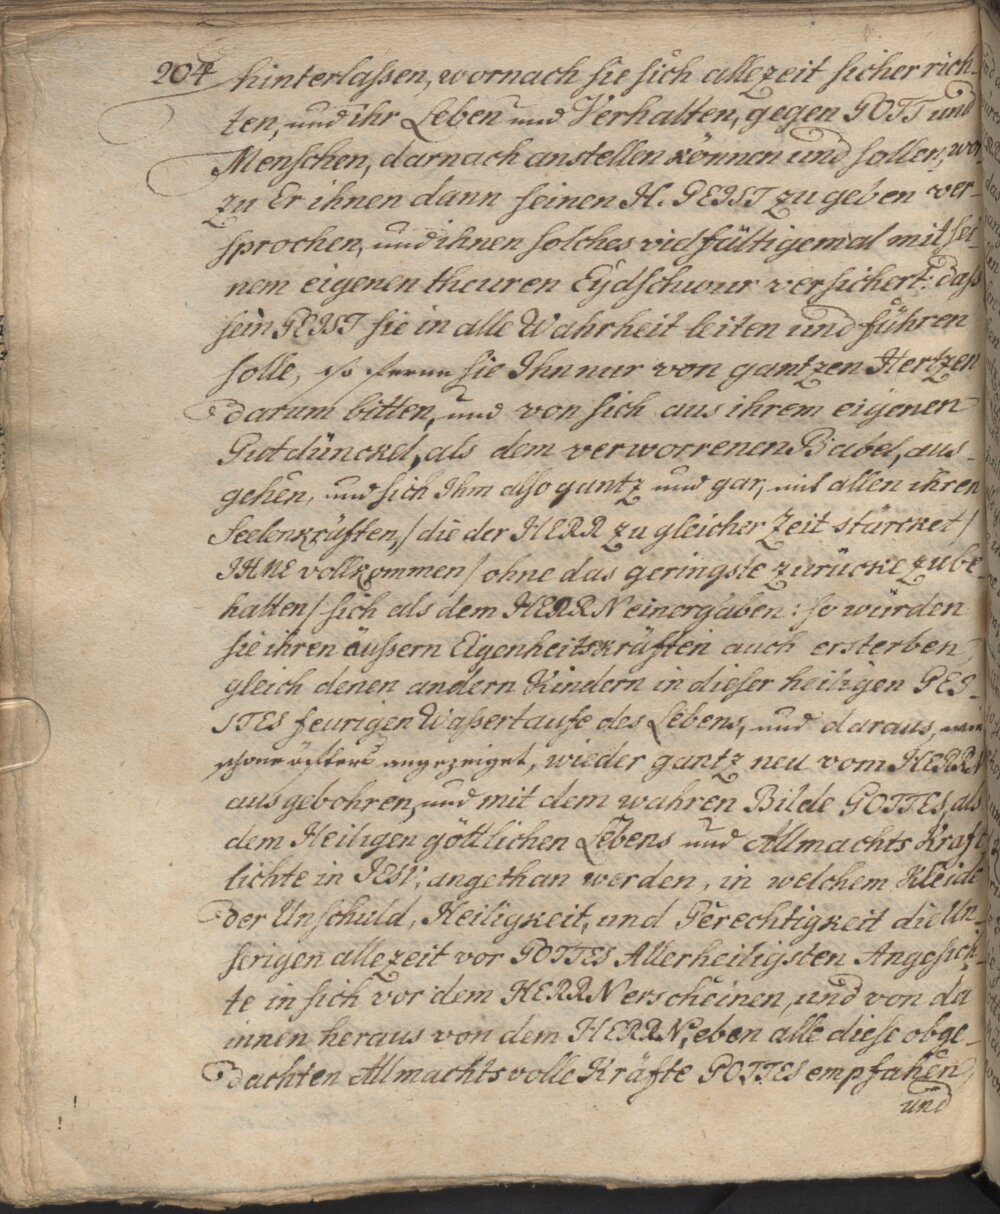 204 hinterlaßen, wornach sie sich allezeit sicher rich-
ten, und ihr Leben und Verhalten, gegen GOTT und
Menschen, darnach anstellen können und sollen, wor
zu Er ihnen dann seinen H. GEIST zu geben ver-
sprochen, und ihnen solches vielfältigemal mit sei-
nem eigenen theuren Eÿdschwur versichert: daß
sein GEIST sie in alle Wahrheit leiten und führen
solle, so ferne sie Ihn nur von gantzen Hertzen
darum bitten, und von sich aus ihrem eigenen
Gutdünckel, als dem verworrenen Babel, aus-
gehen, und sich Ihm also gantz und gar, mit allen ihren
Seelenkräften, / die der HERR zu gleicher Zeit stärcket /
IHME vollkommen / ohne das geringste zurücke zu be-
halten / sich als dem HERRN einergäben: so würden
sie ihren äußern Eigenheitskräften auch ersterben,
gleich denen andern Kindern in dieser heiligen GEI-
STES feurigen Waßertaufe des Lebens, und daraus, wie
schon öfters angezeiget, wieder gantz neu vom HERRN
ausgebohren, und mit dem wahren Bilde GOTTES, als
dem Heiligen göttlichen Lebens und Allmachts Kraft
lichte in JESU, angethan werden, in welchem Kleide
der Unschuld, Heiligkeit, und Gerechtigkeit die Un-
serigen allezeit vor GOTTES Allerheiligsten Angesich-
te in sich vor dem HERRN erscheinen, und von da
innen heraus von dem HERRN, eben alle diese obge-
dachten Allmachtsvolle Kräfte GOTTES empfahen,
und